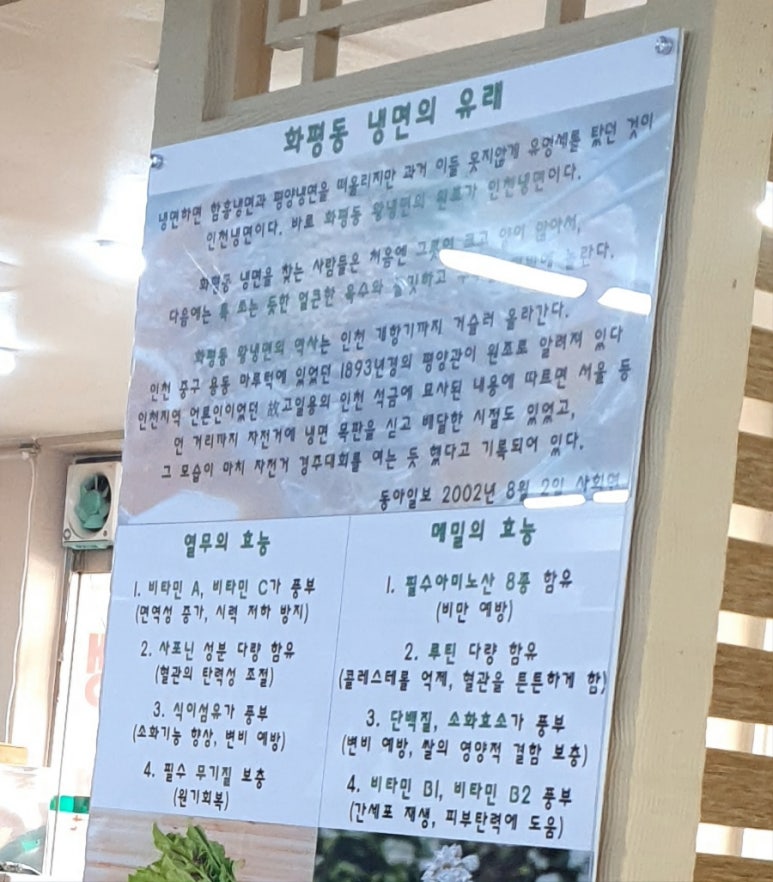 화평동 냉면의 유래
냉면하면 함흥냉면과 평양냉면을 떠올리지만 과거 이들 못지않게 유명세를 탔던 것이
인천냉면이다. 바로 화평동 왕냉면의 원조가 인천냉면이다.
화평동 냉면을 찾는 사람들은 처음엔 그릇이 크고 양이 많아서,
다음에는 톡 쏘는 듯한 얼큰한 육수와 놀란다.
화평동 왕냉면의 역사는 인천 개항기까지 거슬러 올라간다.
인천 중구 용동 마루턱에 있었던 1893년경의 평양관이 원조로 알려져 있다
인천지역 언론인이었던 故고일용의 인천 석금에 묘사된 내용에 따르면 서울 등
먼 거리까지 자전거에 냉면 목판을 싣고 배달한 시절도 있었고,
그 모습이 마치 자전거 경주대회를 여는 듯 했다고 기록되어 있다.
동아일보 2002년 8월 2일
열무의 효능
1. 비타민 A, 비타민 C가 풍부
(면역성 증가, 시력 저하 방지)
2. 사포닌 성분 다량 함유
(혈관의 탄력성 조절)
3. 식이섬유가 풍부
(소화기능 향상, 변비 예방)
4. 필수 무기질 보충
(원기회복)
메밀의 효능
1. 필수아미노산 8종 함유
(비만 예방)
2. 루틴 다량 함유
(콜레스테롤 억제, 혈관을 튼튼하게 함)
3. 단백질, 소화효소가 풍부
(변비 예방, 쌀의 영양적 결함 보충)
4. 비타민 B1, 비타민 B2 풍부
(간세포 재생, 피부탄력에 도움)